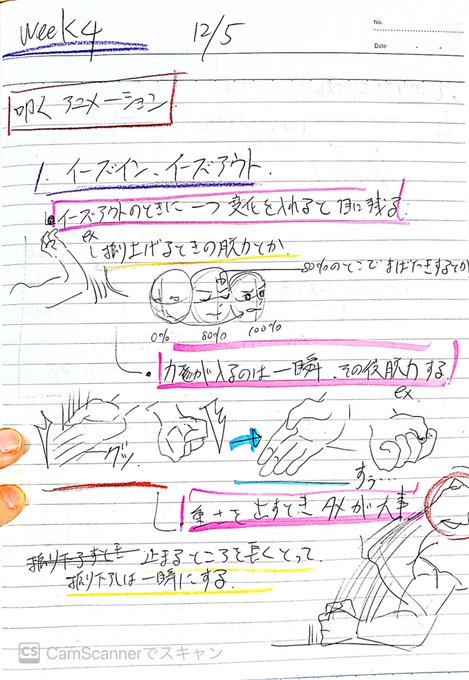 No.
Date
week4 12/5
叩くアニメーション
1. イーズイン、イーズアウト.
イーズアウトのときに一つ変化を入れると目に残る
ex
振り上げるときの脱力とか
80%のとこでまばたきするとか
0% 80% 100%
力が入るのは一瞬、その後脱力する
ex.
グッ
すぅ…
重さを出すときタメが大事
振り下ろすとき 止まるところを長くとって
振り下ろしは一瞬にする.
CS CamScannerでスキャン